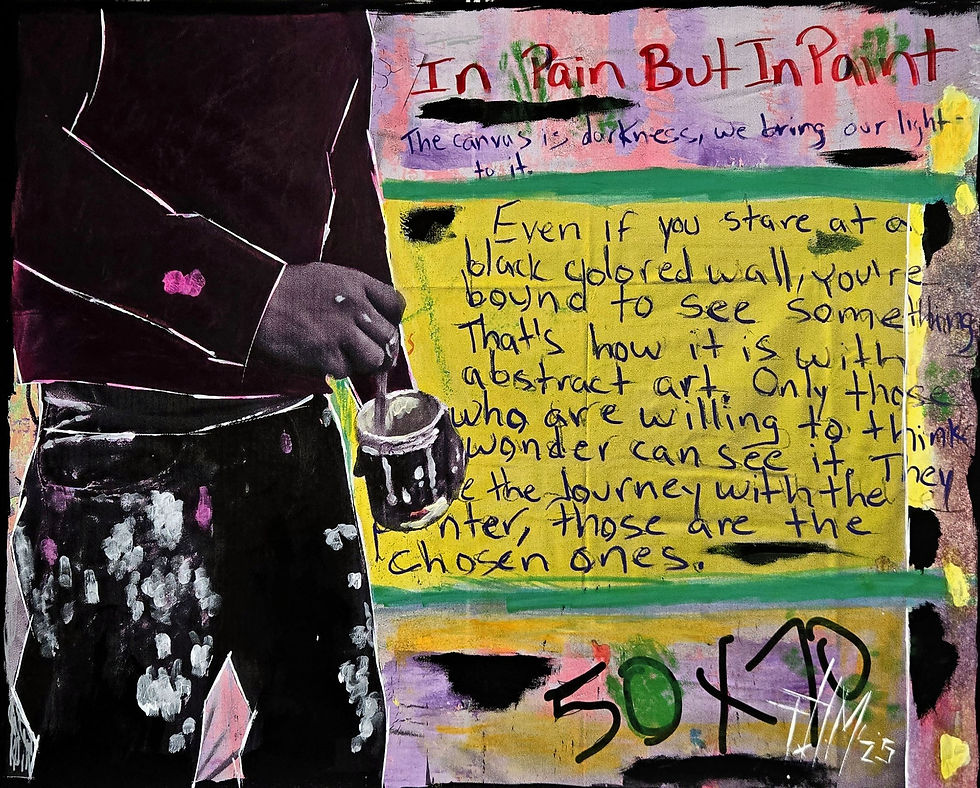 In Pain But In Paint
The canvas is darkness, we bring our light
to it.
Even if you stare at a
black colored wall, you're
bound to see something
That's how it is with
abstract art. Only those
who are willing to think
wonder can see it. They
e the Journey with the
nter, those are the
chosen ones.
50 x
25